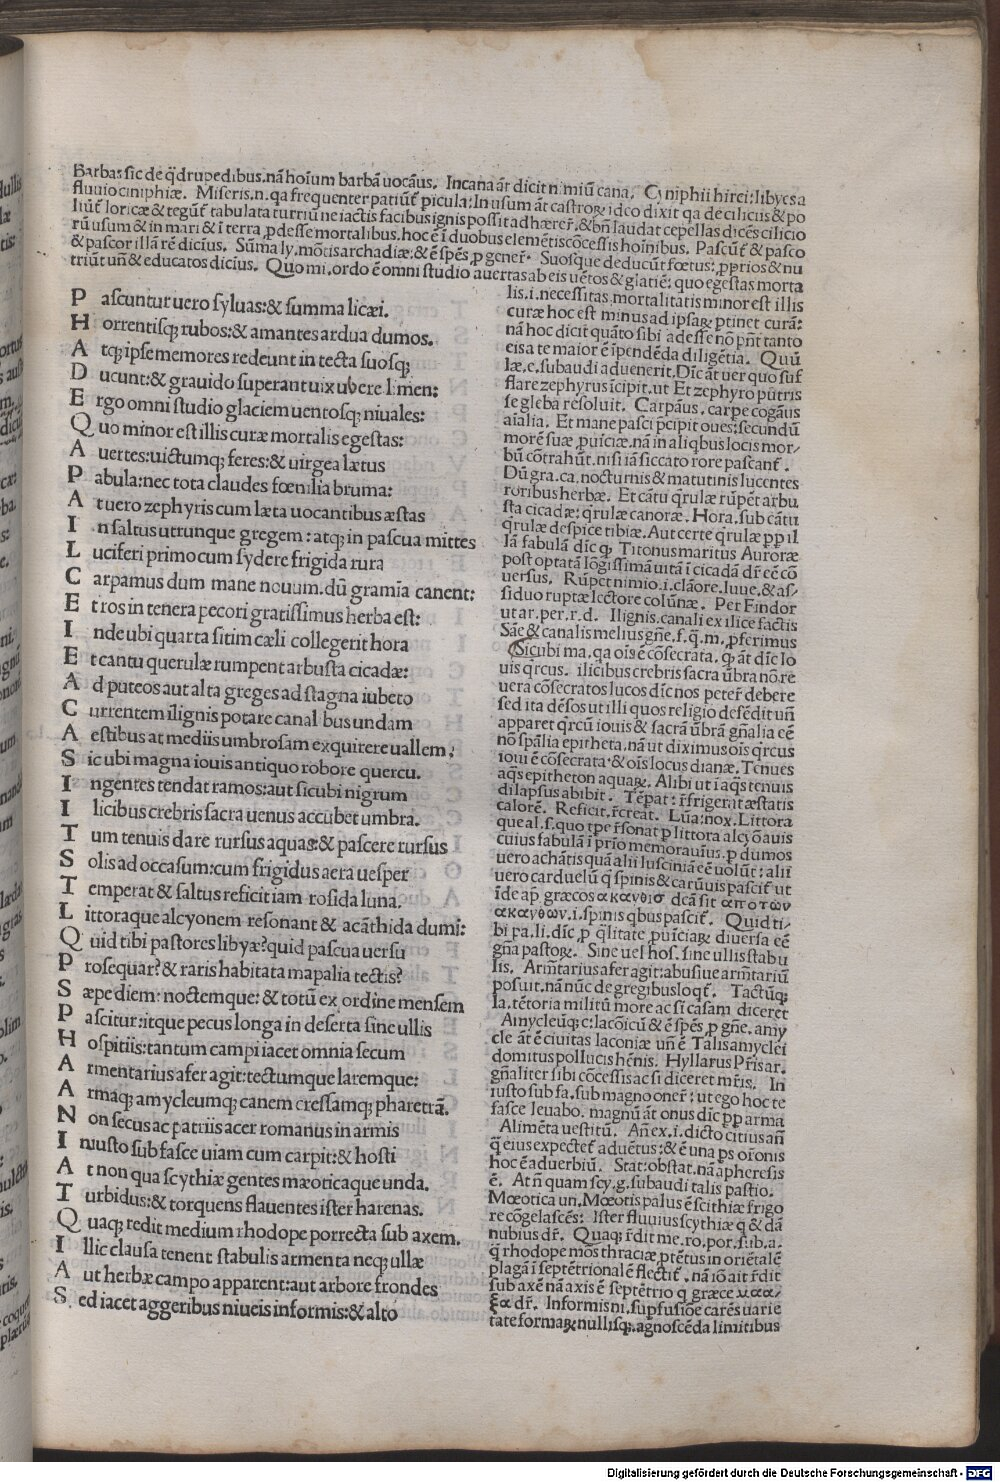 Barbas sic de q̃drupedibus.nã hoĩum barbã uocãus. Incana ãt dicit.n.miũ cana. Cyniphii hirci:libyes a
fluuio ciniphiæ. Miseris.n.qa frequenter patiũt᷑ picula:In usum ãt castroꝝ ideo dixit qa de ciliciis & po
liũt᷑ loricæ & tegũt᷑ tabulata turriũ ne iactis facibus ignis possit adhærer᷑.& bñ laudat cepellas dicẽs cilicio
rũ usum & in mari & ĩ terra ꝓdesse mortalibus.hoc ẽ ĩ duobus elemẽtis cõcessis hoĩnibus. Pascũt᷑ & pasco
& pascor illã rẽ dicius. Sũma ly.mõtis archadiæ:& ẽ spẽs ꝓ gener᷑. Suosque deducũt fœtus:ꝓprios & nu
triũt uñ & educatos dicius. Quo mi.ordo ẽ omni studio auertas ab eis uẽtos & glatiẽ: quo egestas morta
P ascuntur uero syluas:& summa licæi.
H orrentisqꝫ rubos:& amantes ardua dumos.
A tqꝫ ipse memores redeunt in tecta suosqꝫ
D ucunt:& grauido superant uix uvere limen:
E rgo omni studio glaciem uentosqꝫ niuales:
Q uo minor est illis curæ mortalis egestas:
A uertes:uictumqꝫ feres:& uirgea lætus
P abula:nec tota claudes fœnilia bruma:
A t uero zephyris cum læta uocantibus æstas
I n saltus utrunque gregem:atqꝫ in pascua mittes
L uciferi primo cum sydere frigida rura
C arpamus dum mane nouum.dũ gramĩa canent:
E t ros in tenera pecori gratissimus herba est:
I nde ubi quarta sitim cæli collegerit hora
E t cantu querulæ rumpent arbusta cicadæ:
A d puteos aut alta greges ad stagna iubeto
C urrentem ilignis potare canalibus undam
A estibus at mediis umbrosam exquirere uallem:
S ic ubi magna iouis antiquo robore quercu.
I ngentes tendat ramos:aut sicubi nigrum
I licibus crebris sacra uenus accubet umbra.
T um tenuis dare rursus aquas:& pascere rursus
S olis ad occasum:cum frigidus aera uesper
T emperat & saltus reficit iam rosida luna.
L ittoraque alcyonem resonant & acãthida dumi:
Q uid tibi pastores libyæ?quid pascua uersu
P rosequar?& raris habitata mapalia tectis?
S æpe diem: noctemque: & totũ ex ordine mensem
P ascitur:itque pecus longa in deserta sine ullis
H ospitiis:tantum campi iacet omnia secum
A rmentarius afer agit:tectumque laremque:
A rmaqꝫ amycleumqꝫ canem cressamqꝫ pharetrã.
N on secus ac patriis acer romanus in armis
I niusto sub fasce uiam cum carpit:& hosti
A t non qua scythiæ gentes mæoticaque unda.
T urbidus:& torquens flauentes ister harenas.
Q uaqꝫ redit medium rhodope porrecta sub axem.
I llic clausa tenent stabulis armenta neqꝫ ullæ
A ut herbæ campo apparent:aut arbore frondes
S ed iacet aggeribus niueis informis:& alto
lis.i.necessitas mortalitatis minor est illis
curæ hoc est minus ad ipsaꝝ ꝑtinet curã:
nã hoc dicit quãto sibi adesse nõ pñt tanto
eis a te maior ẽ ĩpendẽda diligẽtia. Quũ
læ.e.subaudi aduenerit.Dic̃ ãt uer quo suf
flare zephyrus ĩcipit.ut Et zephyro putris
se gleba resoluit. Carpãus.carpe cogãus
aialia. Et mane pasci ꝑcipit oues:secundũ
morẽ suæ ꝓuiciæ.nã in aliqbus locis mor/
bũ cõtrahũt.nisi iã siccato rore pascant᷑.
Dũ gra.ca.nocturnis & matutinis lucentes
roribus herbæ. Et cãtu q̃rulæ rũpẽt arbu
sta cicadæ: q̃rulæ canoræ. Hora.sub cãtu
q̃rulæ despice tibiæ. Aut certe q̃rulæ ꝓp il
lã fabulã dic̃ qꝫ Titonus maritus Auroræ
post optatã logissimã uitã ĩ cicadã dr̃ eẽ cõ
uersus. Rũpet nimio.i.clãore.Iuue.& as/
siduo ruptæ lectore colũnæ. Per Findor
ut ar.per.r.d. Ilignis.canali ex ilice factis
Sãe & canalis melius gñe.f.q̃.m.ꝓferimus
Sicubi ma.qa oĩs ẽ cõsecrata.qꝫ ãt dic̃ Io
uis q̃rcus. ilicibus crebris sacra ũbra nõ re
uera cõsecratos lucos dic̃ nos peter᷑ debere
sed ita dẽsos ut illi quos religio defẽdit uñ
apparet q̃rcũ iouis & sacrã ũbrã gñalia eẽ
nõ spãlia epitheta.nã ut diximus oĩs q̃rcus
ioui ẽ cõsecrata.& oĩs lucus dianæ. Tenues
aq̃s epitheton aquaꝝ. Alibi ut ĩ aq̃s tenuis
dilapsus abibit. Tẽpat: r̃frigerat æstatis
calorẽ. Reficit.r̃creat. Lũa:nox.Littora
que al.f.quo tꝑe r̃sonat ꝓ littora alcyõ auis
cuius fabulã ĩ prĩo memorauĩus.p dumos
uero achãtis quã alii lusciniã eẽ uolũt: alii
uero carduelũ q̃ spinis & carũuis pascit᷑ ut
ĩde ap᷑ græcos ακανθισ dc̃a sit αποτων
ακανθων.i.spinis qbus pascit᷑. Quid ti/
bi pa.li.dic̃ ꝓ q̃litate ꝓuĩciaꝝ diuersa eẽ
gñia pastoꝝ. Sine uel hos. sine ullis stabu
lis. Arm̃tarius afer agit:abusiue arm̃tariũ
posuit.nã nũc de gregibus loqt᷑. Tactũqꝫ
la.tẽtoria militũ more ac si casam diceret
Amycleũqꝫ c:lacõicũ & ẽ spẽs ꝓ gñe.amy
cle ãt ẽ ciuitas laconiæ uñ ẽ Talis amyclei
domitus pollucis hẽnis. Hyllarus Pr̃is ar.
gñaliter sibi cõcessis ac si diceret mr̃is. In
iusto sub fa.sub magno oner᷑: ut ego hoc te
fasce leuabo. magnũ ãt onus dic̃ ꝓp arma
Alimẽta uestitũ. Añ ex.i.dicto citius añ
q̃ eius expectet᷑ aduẽtus:& ẽ una ps orõnis
hoc ẽ aduerbiũ. Stat:obstat.nã apheresis
ẽ. At ñ quam scy.g.subaudi talis pastio.
Mœotica un.Mœotis palus ẽ scithiæ frigo
re cõgelascẽs: Ister fluuius scythiæ q & dã
nubius dr̃. Quaqꝫ r̃dit me.ro.por.sub.a.
q̃ rhodope mõs thraciæ ꝓtẽtus in oriẽtalẽ
plagã ĩ septẽtrionalẽ flectit᷑.nã iõ ait r̃dit
sub axẽ nã axis ẽ septẽtrio q græce
ξα dr̃. Informis ni.supfusiõe carẽs uarie
tate formaꝝ nullisqꝫ agnoscẽda limitibus
Digitalisierung gefördert durch die Deutsche Forschungsgemeinschaft - DFG